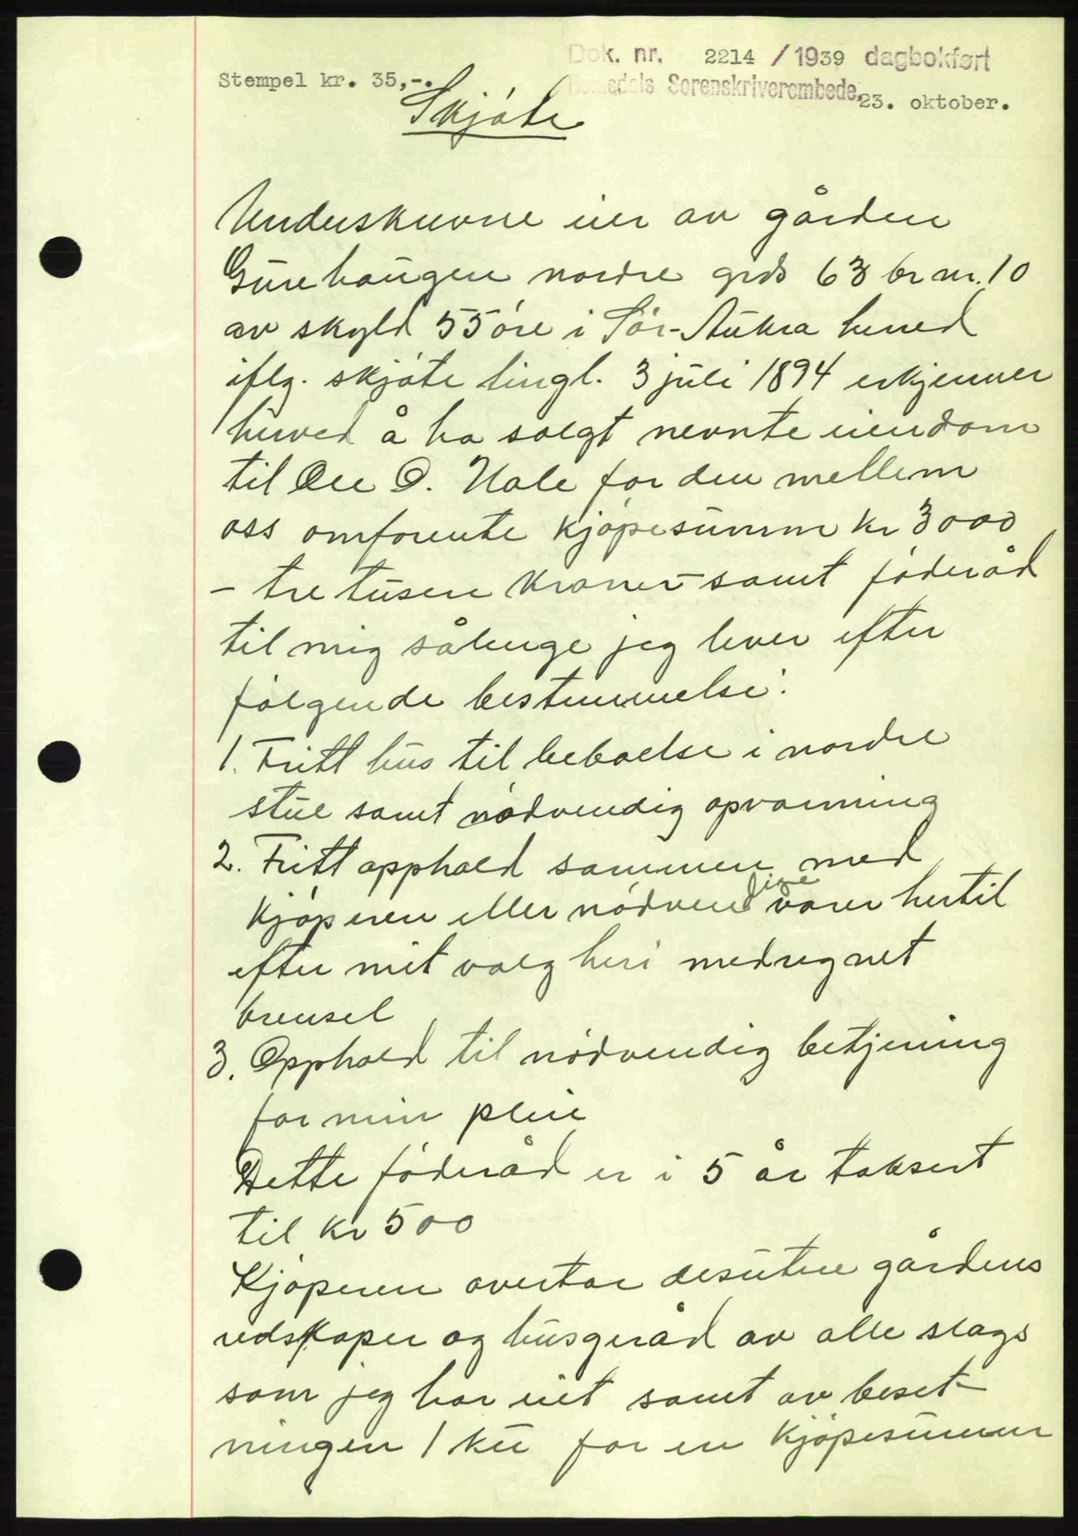 Dok. nr. 2214 / 1939 dagbokført
Stempel kr. 35,-.
Romsdals Sorenskriverembede, 23. oktober.
Skjøte
Underskrevne eier av gården
Gurehaugen nordre grds 63 br nr. 10
av skyld 55 øre i Sør-Aukra herred
iflg. skjøte tingl. 3 juli 1894 erkjenner
herved å ha solgt nevnte eiendom
til Ole O. Hole for den mellem
oss omforente kjøpesumm kr 3000
- tre tusen kroner - samt føderåd
til mig sålenge jeg lever efter
følgende bestemmelse:
1. Fritt hus til beboelse i nordre
stue samt nødvendig opvarming
2. Fritt opphold sammen med
kjøperen eller nødvendige varer hertil
efter mit valg heri medregnet
brensel
3. Opphold til nødvendig betjening
for min pleie
Dette føderåd er i 5 år taksert
til kr 500
Kjøperen overtar desuten gårdens
redskaper og husgeråd av alle slags
som jeg har eiet samt av beset-
ningen 1 ku for en kjøpesumm